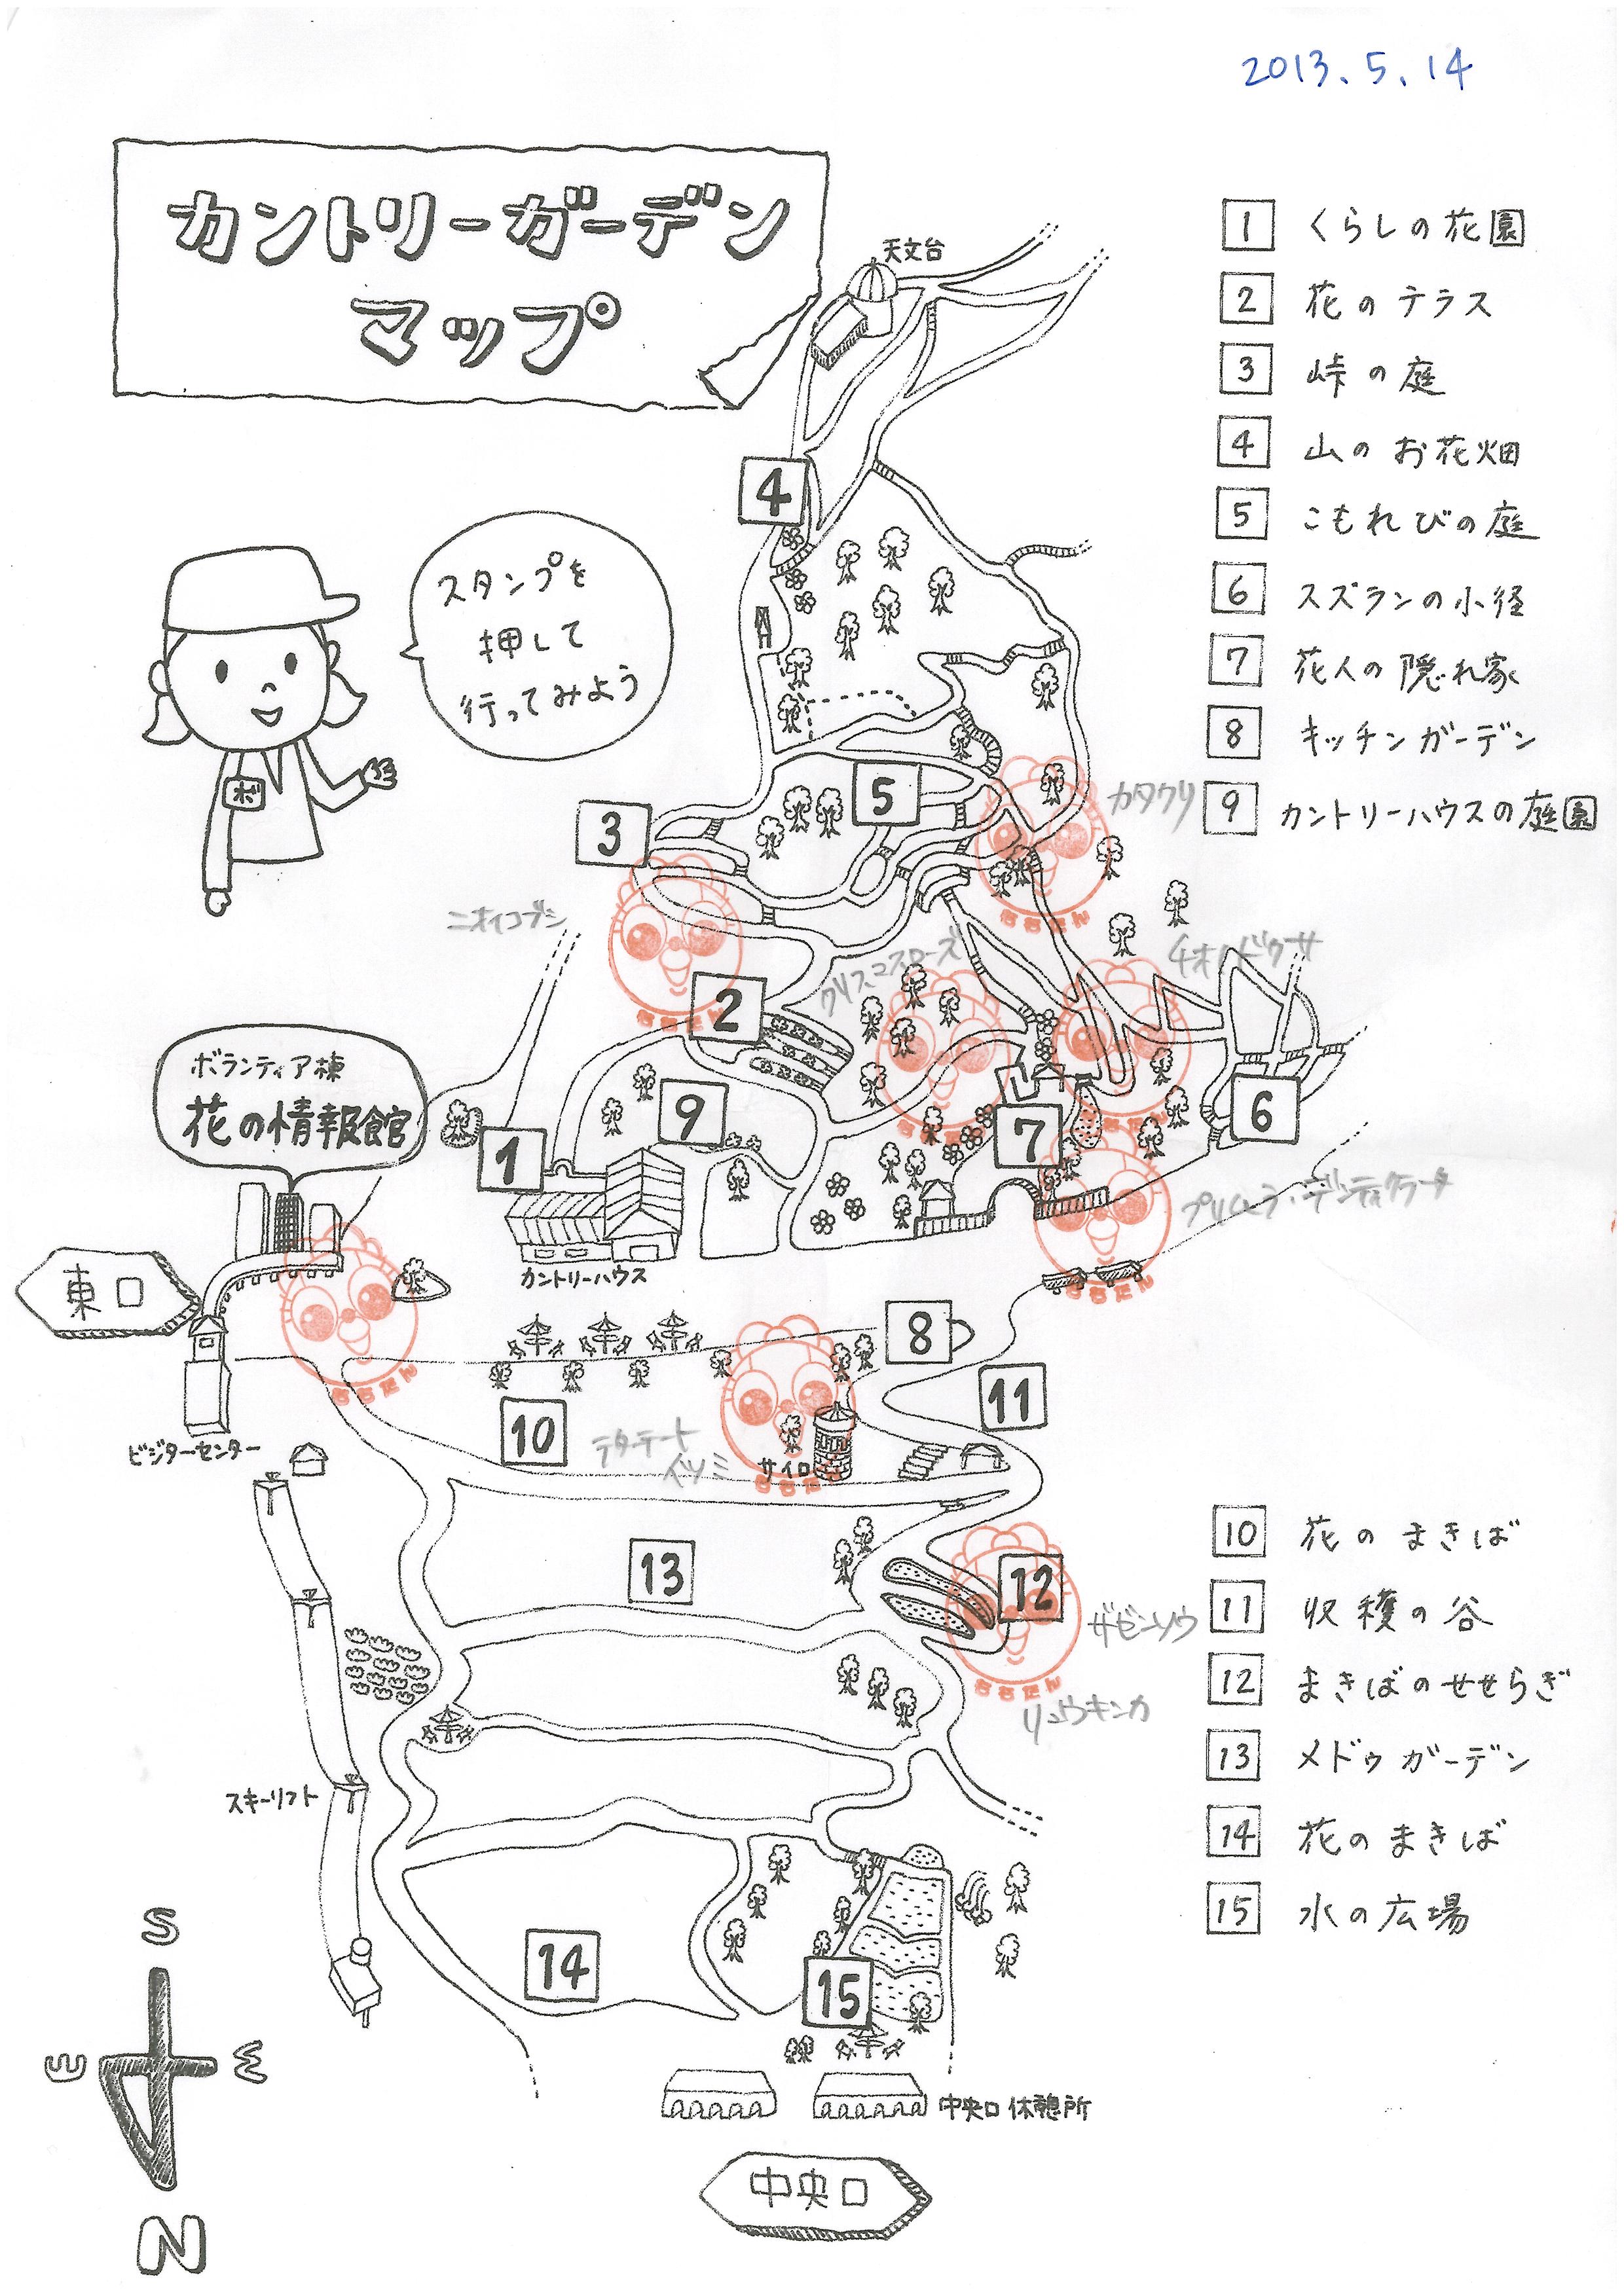 2013.5.14
カントリーガーデン
マップ
天文台
スタンプを
押して
行ってみよう
ボ
1 くらしの花園
2 花のテラス
3 峠の庭
4 山のお花畑
5 こもれびの庭
6 スズランの小径
7 花人の隠れ家
8 キッチンガーデン
9 カントリーハウスの庭園
4
5
3
カタクリ
ニオイコブシ
クリスコスローズ
チオノドクサ
2
9
1
7
6
ボランティア棟
花の情報館
プリムラ・デンティクラータ
東口
カントリーハウス
8
11
10
テターテート
イツミ
サイロ
ビジターセンター
13
12
ザゼンソウ
リュウキンカ
スキーリフト
10 花のまきば
11 収穫の谷
12 まきばのせせらぎ
13 メドゥガーデン
14 花のまきば
15 水の広場
14
15
S
E
W
N
中央口休憩所
中央口
ききたん
ききたん
ききたん
ききたん
ききたん
ききたん
ききたん
ききたん